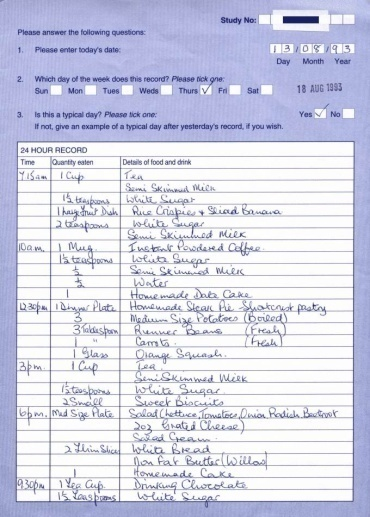 Study No:
Please answer the following questions:
1. Please enter today's date: 13/08/93
Day Month Year
2. Which day of the week does this record? Please tick one:
Sun Mon Tues Weds Thurs ✓ Fri Sat 18 AUG 1993
3. Is this a typical day? Please tick one: Yes ✓ No
If not, give an example of a typical day after yesterday's record, if you wish.
24 HOUR RECORD
Time Quantity eaten Details of food and drink
7.15am 1 Cup Tea
Semi Skimmed Milk
1½ teaspoons White Sugar
1 Large Fruit Dish Rice Crispies + Sliced Banana
2 teaspoons White Sugar
Semi Skimmed Milk
10am. 1 Mug. Instant Powdered Coffee.
1½ teaspoons White Sugar
½ Semi Skimmed Milk
½ Water
1 Homemade Date Cake
12.30pm 1 Dinner Plate Homemade Steak Pie - Shortcrust pastry
3 Medium Size Potatoes (Boiled)
3 Tablespoon Runner Beans (Fresh)
1 " Carrots. (Fresh)
1 Glass Orange Squash.
3pm. 1 Cup Tea.
Semi Skimmed Milk
1½ teaspoons White Sugar
2 Small Sweet Biscuits
6pm. Med Size Plate Salad (Lettuce, Tomatoes, Onion Radish Beetroot
2oz Grated Cheese)
Salad Cream.
2 Thin Slices White Bread
Non Fat Butter (Willow)
1 Homemade Cake
9.30pm 1 Tea Cup. Drinking Chocolate
1½ Teaspoons White Sugar